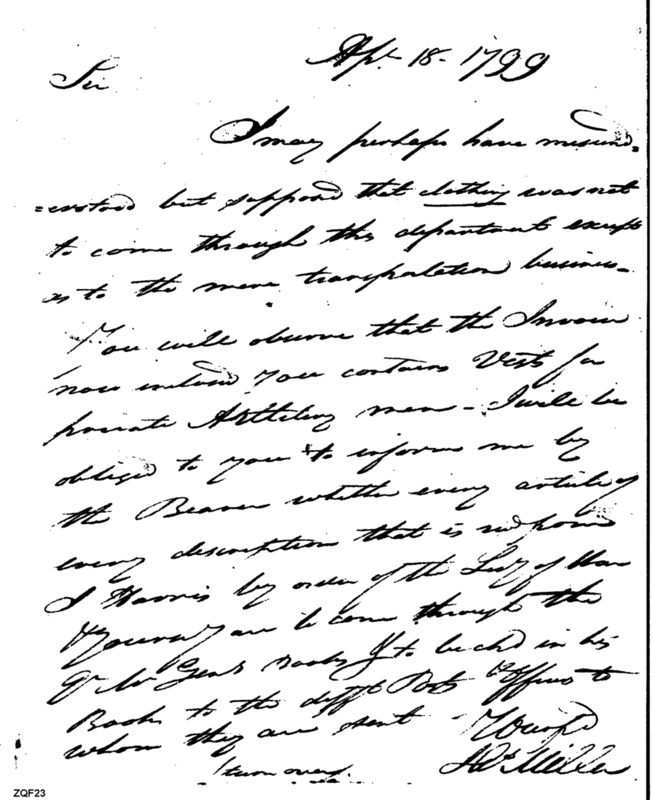 Apl. 18. 1799
Sir
I may perhaps have misund=
=erstood but supposd that clothing was not
to come through this department except
as to the mere transportation business.
You will observe that the Invoice
now inclosd you contains Vests for
private Artillery men - I will be
obliged to you to inform me by
the Bearer whether every article of
every description that is recd from
J Harris by order of the Secy of War
& are to come through the
Qr Mr Genls Books & to be chd in his
Books to the difft Posts & Officers to
whom they are sent
Jn Miller
(turn over)
ZQF23